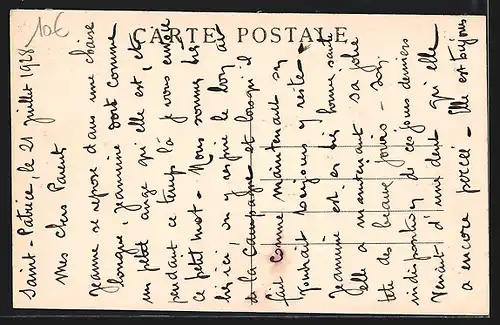 10€
CARTE POSTALE
Saint-Patrice, le 21 juillet 1928
Mes chers Parents
Jeanne se repose dans une chaise
longue, Jeannine dort comme
un petit ange qu'elle est, et
pendant ce temps là je vous envoie
ce petit mot - Nous sommes très
bien ici on y respire le bon air
de la campagne et lorsqu'il
fait comme maintenant on
voudrait toujours y rester -
Jeannine est en très bonne santé
elle a maintenant sa jolie
tête des beaux jours - Son
indisposition de ces jours derniers
venait d'une dent qu'elle
a encore percée - Elle est toujours